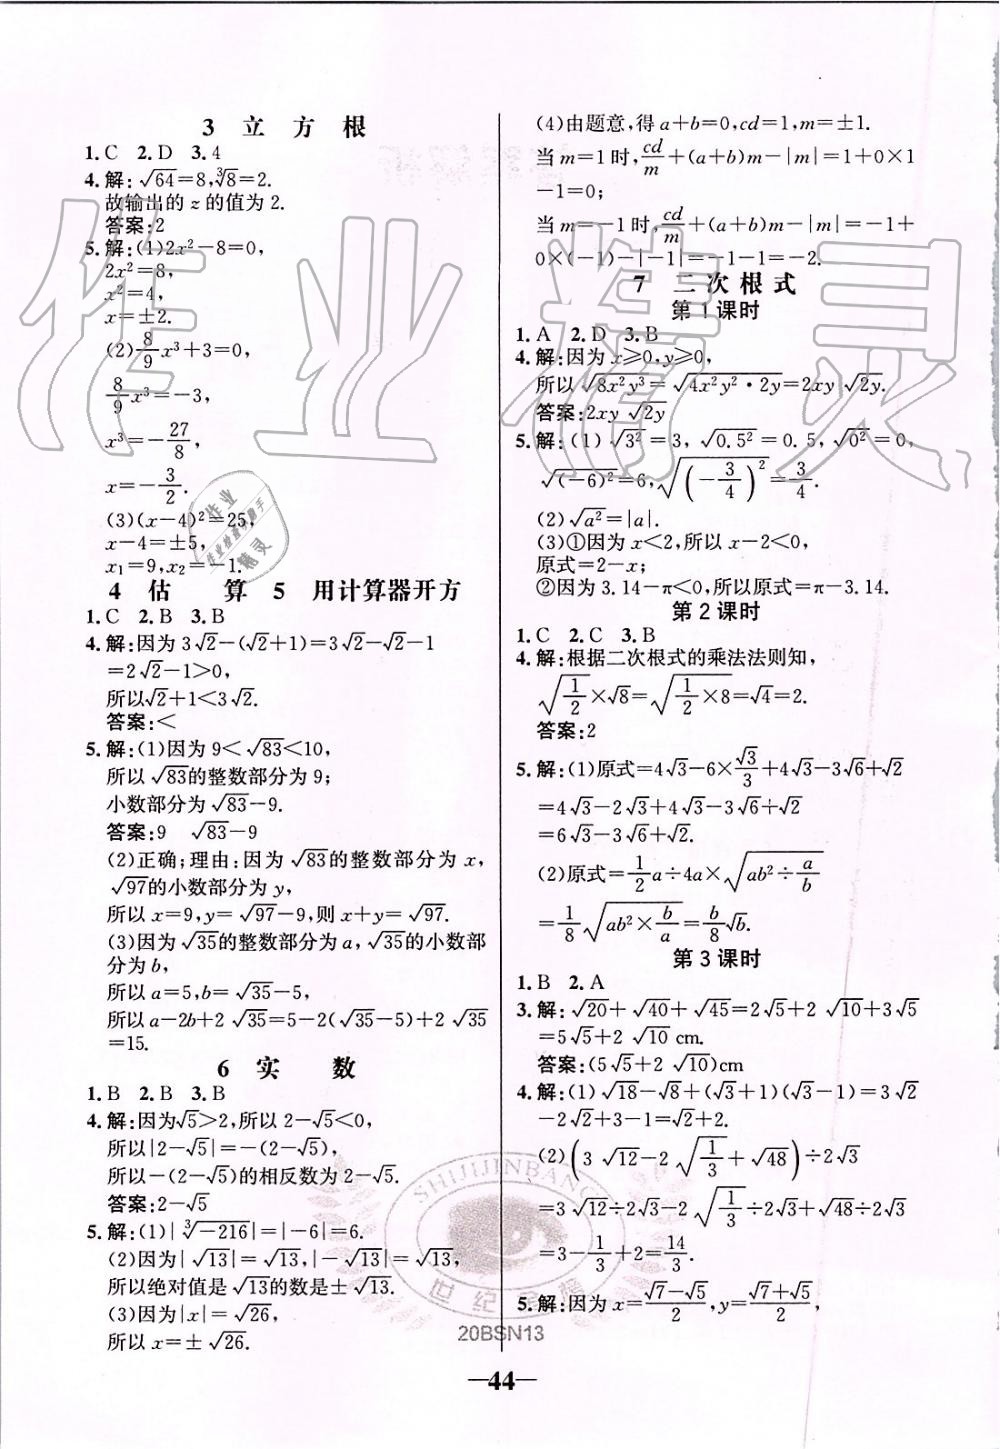 3 立 方 根
1. C 2. D 3. 4
4. 解:√64=8,∛8=2.
故输出的 z 的值为 2.
答案:2
5. 解:(1)2x²-8=0,
2x²=8,
x²=4,
x=±2.
(2)8/9 x³+3=0,
8/9 x³=-3,
x³=-27/8,
x=-3/2.
(3)(x-4)²=25,
x-4=±5,
x₁=9,x₂=-1.
4 估 算 5 用计算器开方
1. C 2. B 3. B
4. 解:因为 3√2-(√2+1)=3√2-√2-1
=2√2-1>0,
所以√2+1<3√2.
答案:<
5. 解:(1)因为 9<√83<10,
所以 √83的整数部分为 9;
小数部分为 √83-9.
答案:9 √83-9
(2)正确;理由:因为 √83的整数部分为 x,
√97的小数部分为 y,
所以 x=9,y=√97-9,则 x+y=√97.
(3)因为 √35的整数部分为 a,√35的小数部
分为 b,
所以 a=5,b=√35-5,
所以 a-2b+2√35=5-2(√35-5)+2√35
=15.
6 实 数
1. B 2. B 3. B
4. 解:因为√5>2,所以 2-√5<0,
所以|2-√5|=-(2-√5),
所以-(2-√5)的相反数为 2-√5.
答案:2-√5
5. 解:(1)|∛-216|=|-6|=6.
(2)因为|√13|=√13,|-√13|=√13,
所以绝对值是 √13的数是±√13.
(3)因为|x|=√26,
所以 x=±√26.
(4)由题意,得 a+b=0,cd=1,m=±1.
当 m=1 时,cd/m+(a+b)m-|m|=1+0×1
-1=0;
当 m=-1 时,cd/m+(a+b)m-|m|=-1+
0×(-1)-|-1|=-1-1=-2.
7 二次根式
第 1 课时
1. A 2. D 3. B
4. 解:因为 x≥0,y≥0,
所以 √8x²y³=√4x²y²·2y=2xy√2y.
答案:2xy√2y
5. 解:(1) √3²=3, √0.5²=0.5, √0²=0,
√(-6)²=6,√(-3/4)²=3/4.
(2)√a²=|a|.
(3)①因为 x<2,所以 x-2<0,
原式=2-x;
②因为 3.14-π<0,所以原式=π-3.14.
第 2 课时
1. C 2. C 3. B
4. 解:根据二次根式的乘法法则知,
√1/2×√8=√(1/2×8)=√4=2.
答案:2
5. 解:(1)原式=4√3-6×√3/3+4√3-3√6+√2
=4√3-2√3+4√3-3√6+√2
=6√3-3√6+√2.
(2)原式=1/2 a÷4a×√(ab²÷a/b)
=1/8√(ab²×b/a)=b/8√b.
第 3 课时
1. B 2. A
3. 解:√20+√40+√45=2√5+2√10+3√5
=5√5+2√10 cm.
答案:(5√5+2√10)cm
4. 解:(1)√18-√8+(√3+1)(√3-1)=3√2
-2√2+3-1=√2+2.
(2)(3√12-2√1/3+√48)÷2√3
=3√12÷2√3-2√1/3÷2√3+√48÷2√3
=3-1/3+2=14/3.
5. 解:因为 x=(√7-√5)/2,y=(√7+√5)/2,
20BSN13
—44—
作业精灵
SHIJIJINBANG
世纪金榜